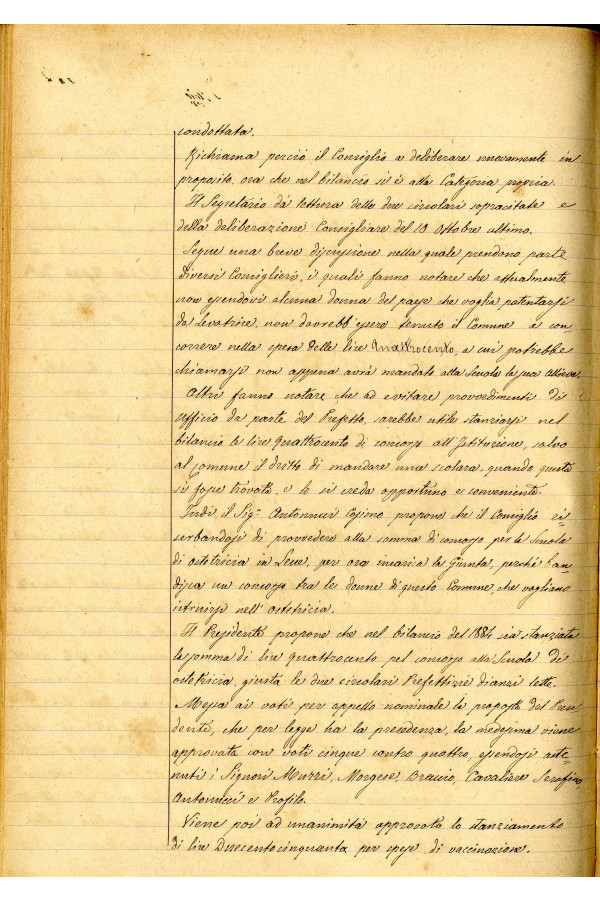 condottata.
Richiama perciò il Consiglio a deliberare nuovamente in
proposito, ora che nel bilancio si è alla Categoria propria.
Il Segretario dà lettura delle due circolari sopracitate e
della deliberazione Consigliare del 10 Ottobre ultimo.
Segue una breve discussione nella quale prendono parte
diversi Consiglieri, i quali fanno notare che attualmente
non essendovi alcuna donna del paese che voglia patentarsi
da Levatrice, non dovrebb'essere tenuto il Comune a con-
correre nella spesa delle lire Quattrocento, a cui potrebbe
chiamarsi non appena avrà mandato alla Scuola la sua allieva.
Altri fanno notare che ad evitare provvedimenti di
ufficio da parte del Prefetto, sarebbe utile stanziarsi nel
bilancio le lire quattrocento di concorso all'Istituzione, salvo
al Comune il dritto di mandare una scolara, quando questa
si fosse trovata, e lo si creda opportuno e conveniente.
Indi il Sig.r Antonucci Cosimo propone che il Consiglio ri-
serbandosi di provvedere alla somma di concorso per la Scuola
di ostetricia in Lecce, per ora incarica la Giunta, perchè ban-
disca un concorso tra le donne di questo Comune, che vogliano
istruirsi nell'ostetricia.
Il Presidente propone che nel bilancio del 1884 sia stanziata
la somma di lire quattrocento pel concorso alla Scuola di
ostetricia, giusta le due circolari Prefettizie dianzi lette.
Messa ai voti per appello nominale la proposta del Presi-
dente, che per legge ha la precedenza, la medesima viene
approvata con voti cinque contro quattro, essendosi aste-
nuti i Signori Murri, Morgese, Braccio, Cavaliere Serafino,
Antonucci e Profilo.
Viene poi ad unanimità approvato lo stanziamento
di lire Duecentocinquanta per spese di vaccinazione.